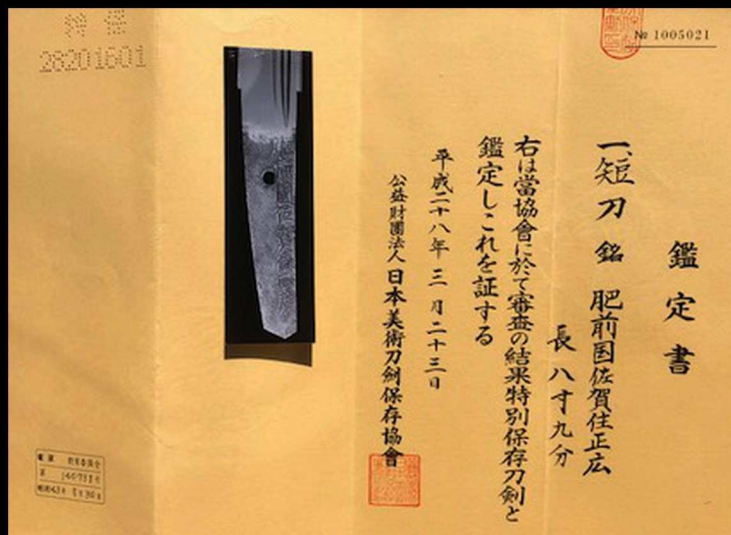 № 1005021
鑑定書
一、短刀 銘 肥前国佐賀住正広
長八寸九分
右は當協會に於て審査の結果特別保存刀劍と
鑑定しこれを証する
平成二十八年三月二十三日
公益財團法人 日本美術刀劍保存協會
特保
28201601